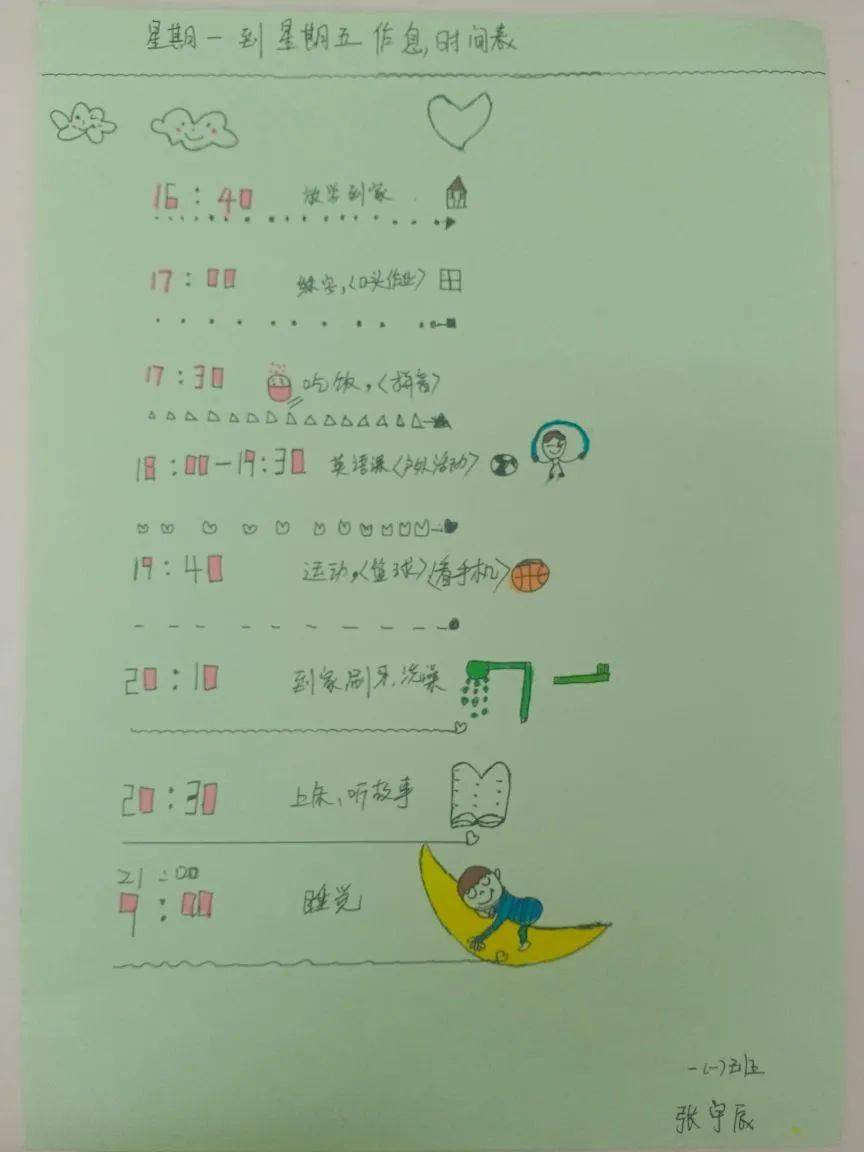 星期一到星期五作息,时间表
16:40 放学到家
17:00 练字,〈口头作业〉
17:30 吃饭,〈拼音〉
18:00-19:30 英语课〈户外活动〉
19:40 运动,〈篮球〉〈看手机〉
20:10 到家刷牙、洗澡
20:30 上床、听故事
21:00
9:00 睡觉
一(一)班
张宇辰